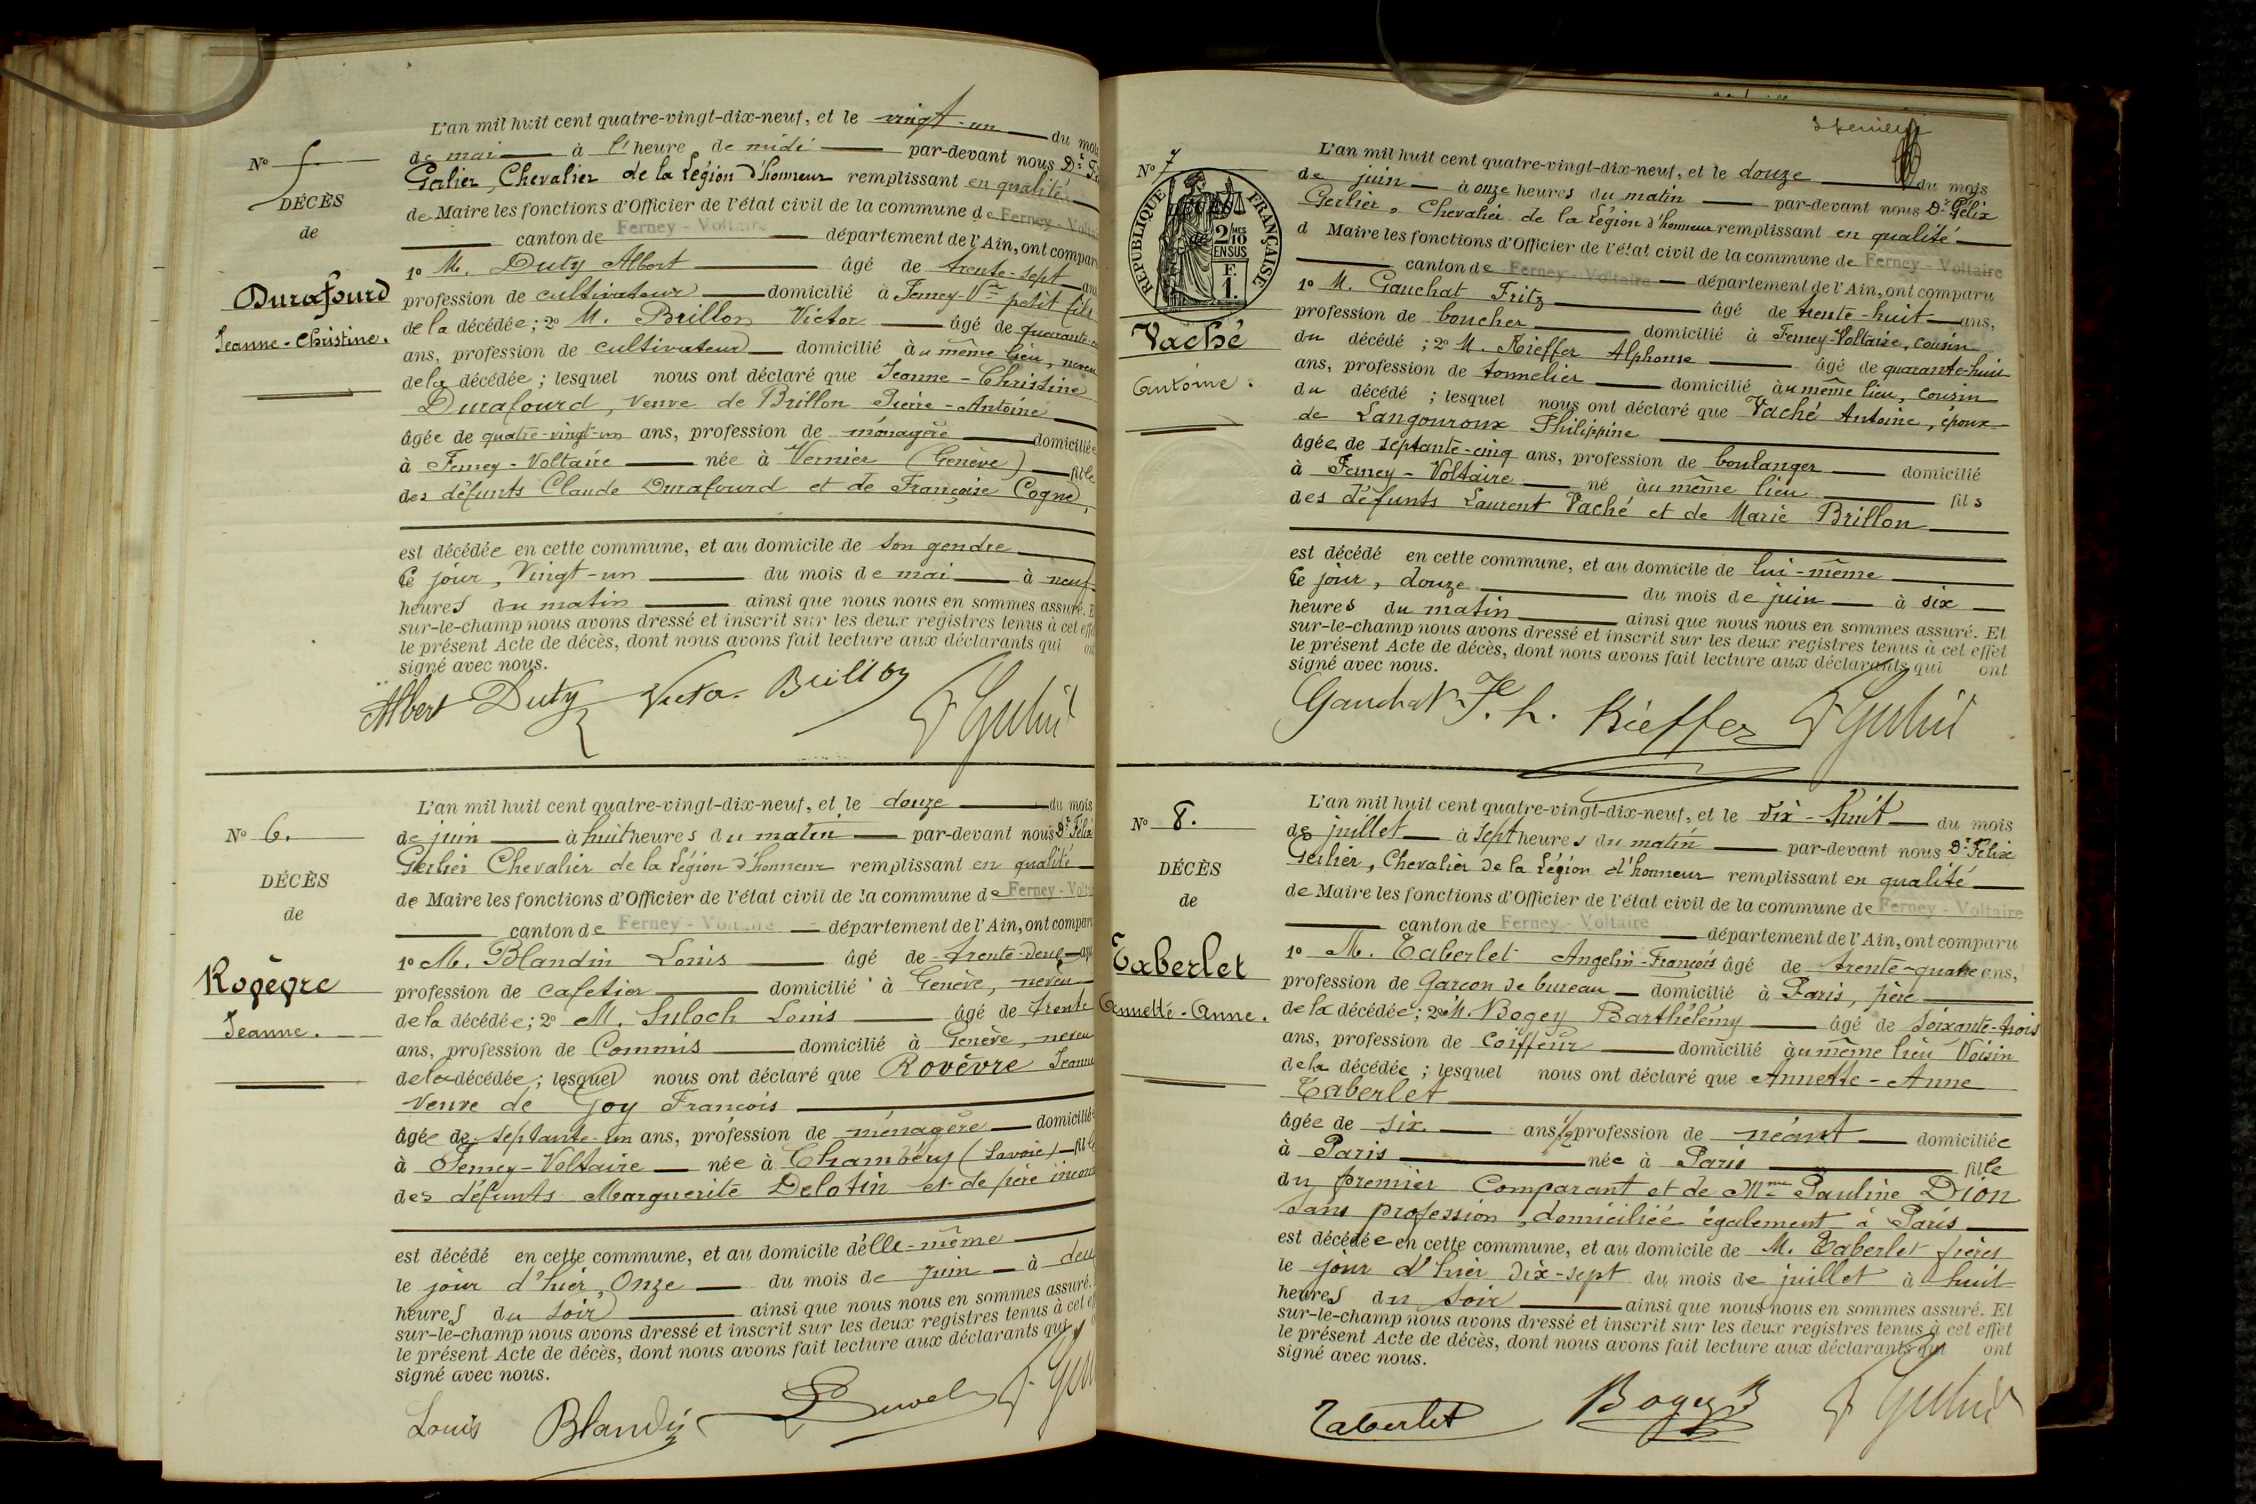 L'an mil huit cent quatre-vingt-dix-neuf, et le vingt-un du mois
de mai à l'heure de midi par-devant nous Dr Fé
Gerlier, Chevalier de la Légion d'honneur remplissant en qualité
de Maire les fonctions d'Officier de l'état civil de la commune de Ferney-Voltai
canton de Ferney-Voltaire département de l'Ain, ont comparu
1º M. Duty Albert âgé de trente-sept ans
profession de cultivateur domicilié à Ferney-Vre petit fils
de la décédée; 2º M. Brillon Victor âgé de quarante
ans, profession de cultivateur domicilié au même lieu, neveu
de la décédée; lesquel nous ont déclaré que Jeanne-Christine
Durafourd, veuve de Brillon Pierre-Antoine
âgée de quatre-vingt-un ans, profession de ménagère domiciliée
à Ferney-Voltaire née à Vernier (Genève) fille
des défunts Claude Durafourd et de Françoise Cogne,
est décédée en cette commune, et au domicile de son gendre
Ce jour, Vingt-un du mois de mai à neuf
heures du matin ainsi que nous nous en sommes assuré. E
sur-le-champ nous avons dressé et inscrit sur les deux registres tenus à cet effe
le présent Acte de décès, dont nous avons fait lecture aux déclarants qui on
signé avec nous.
Albert Duty Victor Brillon
Nº 5
DÉCÈS
de
Durafourd
Jeanne-Christine.
Nº 6.
DÉCÈS
de
Rovèvre
Jeanne.
L'an mil huit cent quatre-vingt-dix-neuf, et le douze du mois
de juin à huit heures du matin par-devant nous Dr Félix
Gerlier Chevalier de la Légion d'honneur remplissant en qualité
de Maire les fonctions d'Officier de l'état civil de la commune de Ferney-Volta
canton de Ferney-Voltaire département de l'Ain, ont comparu
1º M. Blandin Louis âgé de trente-deux ans
profession de cafetier domicilié à Genève, neveu
de la décédée; 2º M. Suloch Louis âgé de trente
ans, profession de Commis domicilié à Genève, neveu
de la décédée; lesquel nous ont déclaré que Rovèvre Jeanne
veuve de Goy François
âgée de septante-un ans, profession de ménagère domiciliée
à Ferney-Voltaire née à Chambéry (Savoie) fille
des défunts Marguerite Delotin et de père incon
est décédé en cette commune, et au domicile d'elle-même
le jour d'hier, Onze du mois de juin à deux
heures du soir ainsi que nous nous en sommes assuré.
sur-le-champ nous avons dressé et inscrit sur les deux registres tenus à cet ef
le présent Acte de décès, dont nous avons fait lecture aux déclarants qui
signé avec nous.
Louis Blandin
Nº 7
RÉPUBLIQUE FRANÇAISE
2/10
EN SUS
F.
1.
Vaché
Antoine.
L'an mil huit cent quatre-vingt-dix-neuf, et le douze du mois
de juin à onze heures du matin par-devant nous Dr Félix
Gerlier, Chevalier de la Légion d'honneur remplissant en qualité
d Maire les fonctions d'Officier de l'état civil de la commune de Ferney-Voltaire
canton de Ferney-Voltaire département de l'Ain, ont comparu
1º M. Gauchat Fritz âgé de trente-huit ans,
profession de boucher domicilié à Ferney-Voltaire, cousin
du décédé; 2º M. Kieffer Alphonse âgé de quarante-huit
ans, profession de tonnelier domicilié au même lieu, cousin
du décédé; lesquel nous ont déclaré que Vaché Antoine, époux
de Langouroux Philippine
âgée de septante-cinq ans, profession de boulanger domicilié
à Ferney-Voltaire né au même lieu fils
des défunts Laurent Vaché et de Marie Brillon
est décédé en cette commune, et au domicile de lui-même
Ce jour, douze du mois de juin à six
heures du matin ainsi que nous nous en sommes assuré. Et
sur-le-champ nous avons dressé et inscrit sur les deux registres tenus à cet effet
le présent Acte de décès, dont nous avons fait lecture aux déclarants qui ont
signé avec nous.
Gauchat F. h. Kieffer
Nº 8.
DÉCÈS
de
Taberlet
Annette-Anne.
L'an mil huit cent quatre-vingt-dix-neuf, et le dix-huit du mois
de juillet à sept heures du matin par-devant nous Dr Félix
Gerlier, Chevalier de la Légion d'honneur remplissant en qualité
de Maire les fonctions d'Officier de l'état civil de la commune de Ferney-Voltaire
canton de Ferney-Voltaire département de l'Ain, ont comparu
1º M. Taberlet Angelin-François âgé de trente-quatre ans,
profession de Garçon de bureau domicilié à Paris, père
de la décédée; 2º M. Bogey Barthélémy âgé de soixante-trois
ans, profession de Coiffeur domicilié au même lieu Voisin
de la décédée; lesquel nous ont déclaré que Annette-Anne
Taberlet
âgée de six ans 1/2 profession de néant domiciliée
à Paris née à Paris fille
du premier Comparant et de Mme Pauline Dion
sans profession, domiciliée également à Paris
est décédée en cette commune, et au domicile de M. Taberlet frères
le jour d'hier dix-sept du mois de juillet à huit
heures du soir ainsi que nous nous en sommes assuré. Et
sur-le-champ nous avons dressé et inscrit sur les deux registres tenus à cet effet
le présent Acte de décès, dont nous avons fait lecture aux déclarants qui ont
signé avec nous.
Taberlet Bogey B